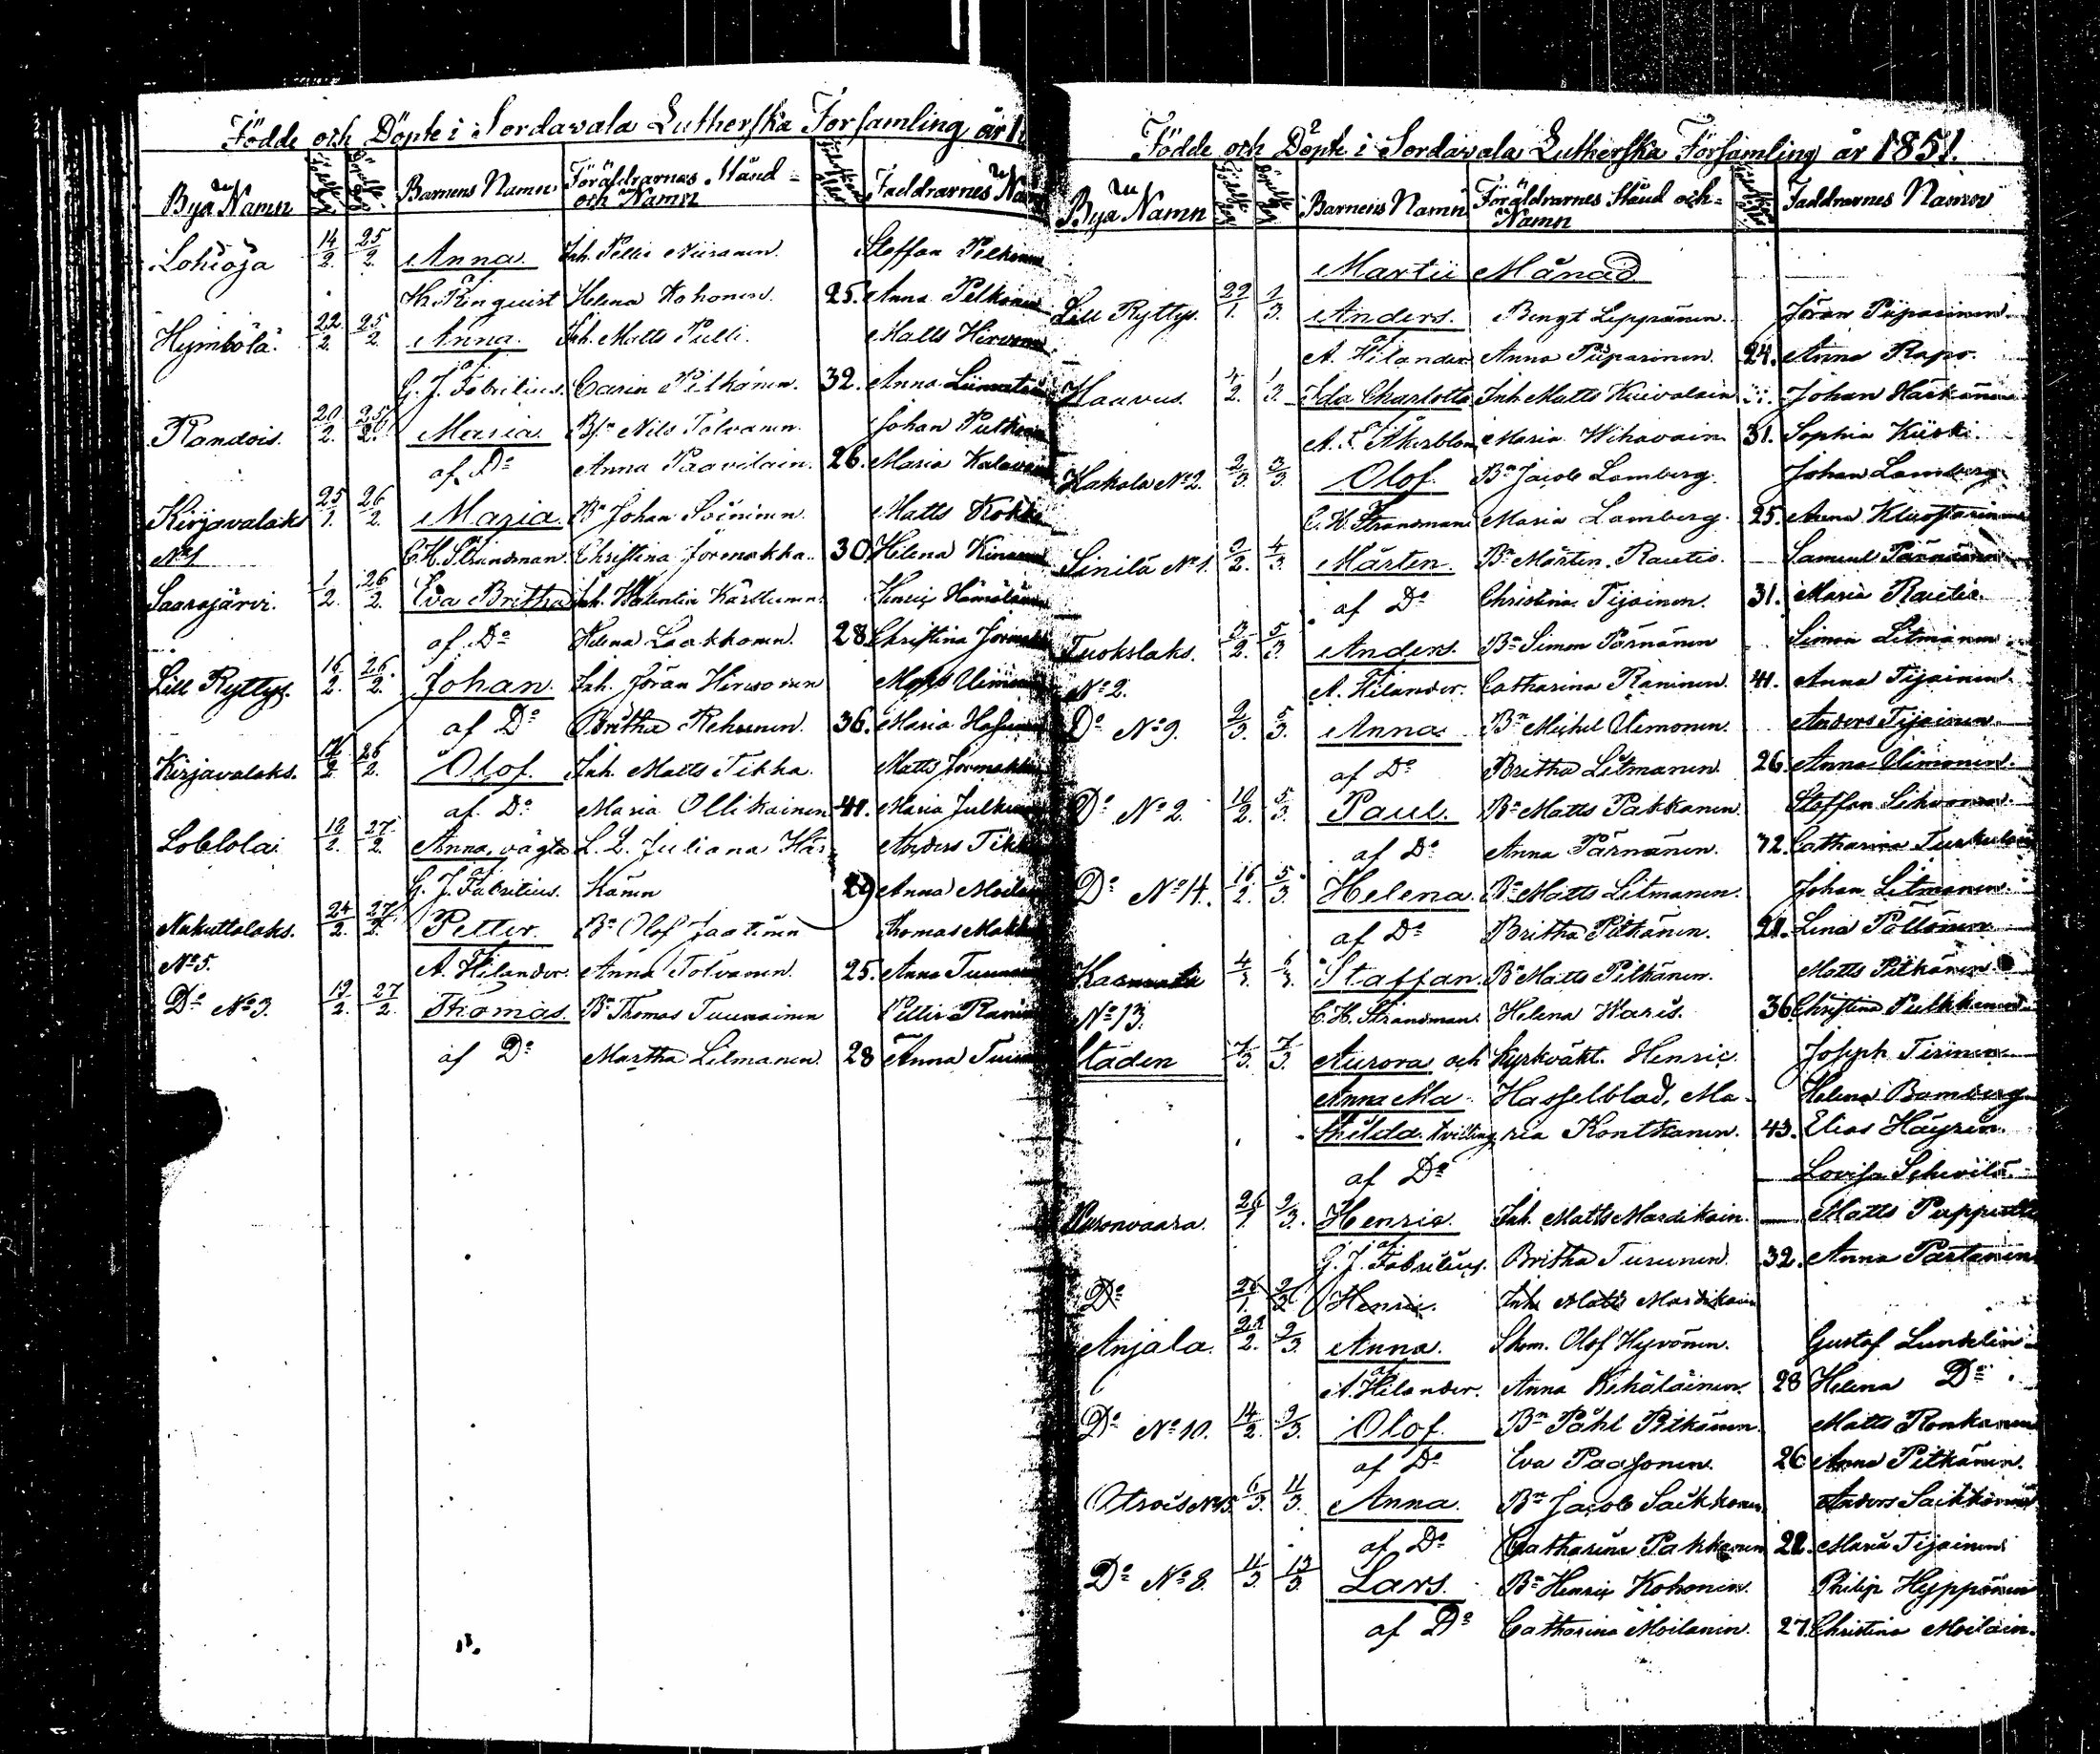 Födde och Döpte i Sordavala Lutherska Församling år 1
Bya Namn Barnens Namn Föräldrarnes Stånd och Namn Faddrarnes Namn
Lohioja 14/2. 25/2. Anna. Inh. Petter Niiranen. Steffan Pelkonen
af Th. Finquist Helena Kohonen. 25. Anna Pelkonen
Hymbölä. 22/2. 25/2. Anna. Inh. Matts Pulli. Matts Hirvonen
af G. J. Fabritius. Carin Pitkänen. 32. Anna Liimatain
Randois. 20/2. 25/2. Maria. Bn. Nils Tolvanen. Johan
af Do Anna Paavilain. 26. Maria
Kirjavalaks 25/1. 26/2. Maria Bn Johan Soininen. Matts Kokko
No 1 af C. H. Strandman. Christina Jormakka. 30. Helena
Saarajärvi. 1/2. 26/2. Eva Britha Inh. Walentin Karttunen. Henric Hämäläinen
af Do Helena Laakkonen. 28. Christina Jormakka
Lill Ryttys. 16/2. 26/2. Johan. Inh. Jöran Hirvonen Uimonen
af Do Britha Rehunen. 36. Maria
Kirjavalaks. 26/2. Olof. Inh. Matts Tikka. Matts Jormakka
af Do Maria Ollikainen 41. Maria Julkunen
Loblola 18/2. 27/2. Anna, oägta L. Q. Juliana Här- Anders Tikka
af G. J. Fabritius. känen 29 Anna
Nukuttalaks. 24/2. 27/2. Petter. Bn Olof Jaatinen Thomas
No 5. A. Hilander. Anna Tolvanen. 25. Anna
Do No 3. 19/2. 27/2. Thomas. Bn Thomas Tuunainen Petter
af Do Martha Litmanen. 28 Anna
Födde och Döpte i Sordavala Lutherska Församling år 1851.
Bya Namn Barnens Namn Föräldrarnes Stånd och Namn Faddrarnes Namn
Martii Månad.
Lill Ryttys. 22/1. 1/3. Anders. Bengt Leppänen. Jöran Piiparinen.
af A. Hilander Anna Piiparinen. 24. Anna Rapo.
Haavus. 4/2. 1/3. Ida Charlotta Inh Matts Kuivalain Johan Härkönen
A. E. Åkerblom Maria Wihavain 31. Sophia Kiiski.
Hakala No 2. 2/3. 3/3. Olof. Bn Jacob Lamberg. Johan Lamberg
C. H. Strandman Maria Lamberg. 25. Anna
Sinilä No 1. 2/2. 4/3. Mårten. Bn Mårten Rautio. Samuel Pärnänen
af Do Christina Tijainen. 31. Maria Rautio.
Tuokslaks. 5/3. Anders. Bn Simon Pärnänen Simon Litmanen
No 2. af A. Hilander. Catharina Raninen. 41. Anna Tijainen.
Do No 9. 2/3. 5/3. Anna Bn Michel Uimonen. Anders Tijainen.
af Do Britha Litmanen 26. Anna Uimonen.
Do No 2. 10/2. 5/3. Paul. Bn Matts Pakkanen. Steffan Sihvonen.
af Do Anna Pärnänen. 32. Catharina Turkulain
Do No 4. 16/2. 5/3. Helena. Bn Matts Litmanen. Johan Litmanen.
af Do Britha Pitkänen. 21. Lena Pöllönen
Staffan. Bn Matts Pitkänen. Matts Pitkänen
No 13. C. H. Strandman. Helena Waris. 36. Christina Pulkkinen.
Staden 7/3. Aurora och Kyrkväkt. Henric Joseph Tirinen
Anna Ma- Hasselblad, Ma- Helena Bamberg
thilda. tvilling ria Konttanen. 43. Elias Häyren.
af Do Lovisa
Pusonvaara. 26/1. 9/3. Henric. Inh. Matts Mardikain. Matts
af G. J. Fabritius. Britha Turunen. 32. Anna Partanen
Do 26/1. Henric. Inh. Matts Mardikain
Anjala. 22/2. 9/3. Anna. Skom. Olof Hyvönen. Gustaf Lundelin
af A. Hilander. Anna Kekäläinen. 28 Helena Do
Do No 10. 14/2. 9/3. Olof. Bn Påhl Pitkänen Matts Ronkanen
af Do Eva Paasonen. 26 Anna Pitkänen.
Otrois No 15. 6/3. 11/3. Anna. Bn Jacob Saikkonen Anders Saikkonen
af Do Catharina Pakkanen 22. Maria Tijainen
Do No 8. 11/3. 13/3. Lars. Bn Henric Kohonen. Philip Hyppönen
af Do Catharina Moilanen. 27. Christina Moilain.